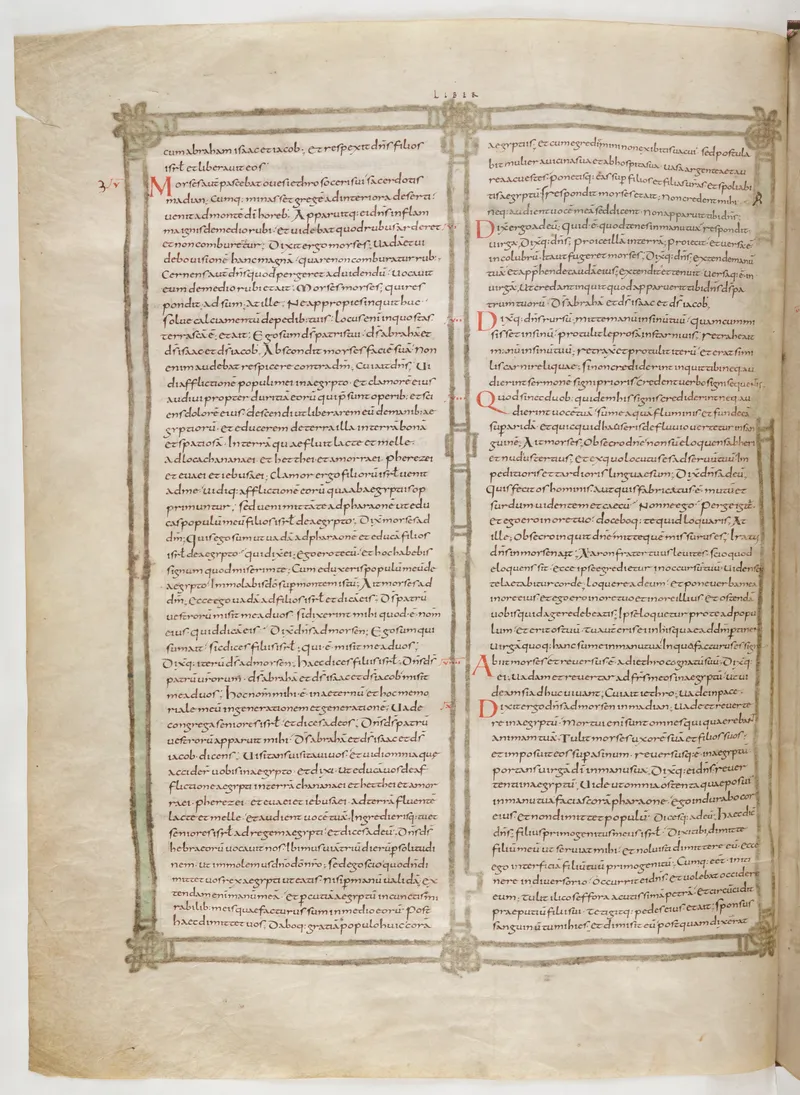 LIBER
cum abraham isaac et iacob. Et respexit dñs filios
isrł et liberauit eos
3
Moyses aut pascebat oues iethro soceri sui sacerdotis
madian; Cumq; minasset gregē ad interiora deserti
uenit ad montē di horeb. Apparuitq; ei dñs in flam
ma ignis de medio rubi. et uidebat quod rubus arderet
et non combureretur; Dixit ergo moyses; Uadā et ui
debo uisionē hanc magnā. quare non comburatur rub;
Cernens aut dñs quod pergeret ad uidendū; Uocauit
eum de medio rubi et ait. Moyses moyses; qui res
pondit. ad sum; At ille. Ne appropies inquit huc.
solue calciamentū de pedib; tuis. locus enī in quo stas
terra scā ē. et ait; Ego sum ds patris tui. ds abrahā et
ds isaac et ds iacob; Abscondit moyses faciē suā. non
enim audebat respicere contra dm̄; Cui ait dñs; Ui
di afflictionē populi mei in aegypto. et clamorē eius
audiui propter duritiā eorū qui p̄sunt operib; et sci
ens dolorē eius descendi ut liberarem eū de manib; ae
gyptiorū. et educerem de terra illa in terrā bonā
et spatiosā. In terrā quae fluit lacte et melle.
ad loca chananaei. et hetthei et amorraei. pherezei
et euaei et iebusaei; clamor ergo filiorū isrł uenit
ad me. uidiq; afflictionē eorū qua ab aegyptiis op
primuntur. sed ueni mittā te ad pharaonē ut edu
cas populū meū filios isrł de aegypto; Dix̄ moyses ad
dm̄; Quis ego sum ut uadā ad pharaonē et educā filios
isrł de aegypto. qui dix̄ ei; ego ero tecū. et hoc habebis
signum quod miserim te; Cum eduxeris populū meū de
aegypto. Immolabis dō sup montem istū; Ait moyses ad
dm̄; Ecce ego uadā ad filios isrł et dicā eis; Ds patrū
uestrorū misit me ad uos; si dixerint mihi quod ē nom̄
eius quid dicā eis. Dix̄ dñs ad moysen; Ego sum qui
sum ait. sic dices filiis isrł; qui ē misit me ad uos;
Dixitq; iterū ds ad moysen; Haec dices filiis isrł; Dñs ds
patrū urorum. ds abrahā et ds isaac et ds iacob misit
me ad uos; Hoc nom̄ mihi ē in aeternū et hoc memo
riale meū in generationem et generationē; Uade
congrega seniores isrł. et dices ad eos; Dñs ds patrū
uestrorū apparuit mihi. Ds abrahā et ds isaac et ds
iacob dicens; Uisitans uisitaui uos. et uidi omnia que
acciderᵗ uobis in aegypto. et dixi. ut educā uos de af
flictione aegypti in terrā chananaei et hetthei et amor
raei. pherezei. et euaei et iebusaei. ad terrā fluente
lacte et melle. et audient uocē tuā; Ingredierisq; tu et
seniores isrł ad regem aegypti. et dices ad eū; Dñs ds
hebraeorū uocauit nos. Ibimus uiā triū dierū p̄ solitudi
nem. ut immolemus dño dō nrō; sed ego scio quod n̄ di
mittet uos rex aegypti ut eatis. nisi p̄ manū ualidā. ex
tendam enī manū meā. et pcutiā aegyptū in cunctis mi
rabilib. meis quae facturus sum in medio eorū. Post
haec dimittet uos; Daboq; gratiā populo huic corā
aegyptiis; et cum egrediemini non exibitis uacui. sed postula
bit mulier a uicina sua et ab hospita sua. uasa argentea et au
rea ac uestes. ponetisq; eas sup filios et filias uras. et spoliabi
tis aegyptū; respondit moyses et ait; Non credent mihi.
neq; audient uocē meā sed dicent. Non apparuit tibi dñs;
Dixit ergo ad eū; Quid ē quod tenes in manu tua; respondit.
uirga; Dixitq; dñs. proice illā in terrā; proiecit. et uersa ē
in colubrū. Ita ut fugeret moyses; Dixitq; dñs. extende manū
tuā et appehende caudā eius; extendit et tenuit. Uersaq; ē in
uirgā; Ut credant inquit quod apparuerit tibi dñs ds pa
trum tuorū. Ds abrahā et ds isaac et ds iacob;
Dixitq; dñs rursū; mitte manū in sinū tuū. quam cum mi
sisset in sinū. protulit leprosā instar niuis; retrahe ait
manū in sinū tuū. retraxit et protulit iterū. et erat simi
lis carni reliquae. si non crediderint inquit tibi neq; au
dierint sermonē signi prioris. Credent uerbo signi sequentis;
Quod si nec duob; quidem his signis crediderint neq; au
dierint uocē tuā. sume aquā fluminis et funde eā
sup aridā. et quicquid hauseris de fluuio uertetur in san
guinē; Ait moyses. Obsecro dn̄e non sū eloquens ab heri
et nudiustertius. et ex quo locutus es ad seruū tuū Im
peditioris et tardioris linguae sum; Dixit dñs ad eū;
Quis fecit os hominis. Aut quis fabricatus ē mutū et
surdum uidentem et caecū. Nonne ego. Perge igit̄.
et ego ero in ore tuo. doceboq; te quid loquaris. At
ille; Obsecro inquit dn̄e mitte que missurus es; Iratus
dñs in moysen ait. Aaron frater tuus leuites. scio quod
eloquens sit. ecce ipse egredietur in occursū tuū. Uidensq;
te laetabitur corde; loquere ad eum. et pone uerba mea
in ore eius. et ego ero in ore tuo et in ore illius. et ostendā
uobis quid agere debeatis; Ipse loquetur pro te ad popu
lum et erit os tuū. tu aut eris ei in his quae ad dm̄ ptinent
uirgā quoq; hanc sume in manu tua. In qua facturus es signa
Abiit moyses et reuersus ē ad iethro cognatū suū. Dixitq;
ei; Uadam et reuertar ad frs meos in aegyptū. ut ui
deam si adhuc uiuant; Cui ait iethro; uade in pace.
Dixit ergo dñs ad moysen in madian; Uade et reuerte
re in aegyptū. Mortui enī sunt omnes qui quaerebant
animam tuā. Tulit moyses uxorē suā et filios suos.
et imposuit eos sup asinum. reuersusq; ē in aegyptū
portans uirgā dī in manu sua; Dixitq; ei dñs reuer
tenti in aegyptū; Uide ut omnia ostenta quae posui
in manu tua facias corā pharaone. ego indurabo cor
eius. et non dimittet populū. Dicesq; ad eū; Haec dic̄
dñs. filius primogenitus meus isrł. Dixi tibi dimitte
filiū meū ut seruiat mihi. et noluisti dimittere eū. ecce
ego interficiā filiū tuū primogenitū; Cumq; eēt in iti
nere in diuersorio. Occurrit ei dñs. et uolebat occidere
eum; tulit ilico seffora acutissimā petrā. et circūcidit
praeputiū filii sui. Tetigitq; pedes eius et ait; sponsus
sanguinū tu mihi es. et dimisit eū postquam dixerat